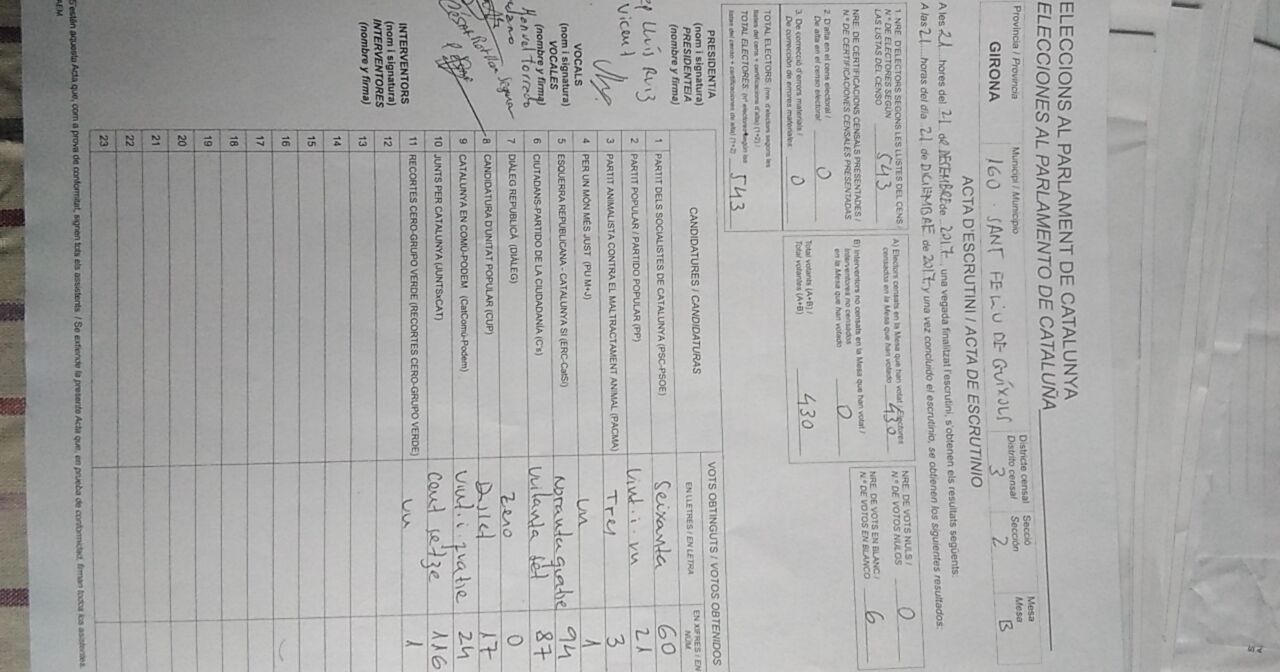 ELECCIONS AL PARLAMENT DE CATALUNYA
ELECCIONES AL PARLAMENTO DE CATALUÑA
Província / Provincia
GIRONA
Municipi / Municipio
160 · SANT FELIU DE GUÍXOLS
Districte censal
Distrito censal
3
Secció
Sección
2
Mesa
Mesa
B
ACTA D'ESCRUTINI / ACTA DE ESCRUTINIO
A les 21 hores del 21 de DECEMBRE de 2017 una vegada finalitzat l'escrutini, s'obtenen els resultats següents:
A las 21 horas del día 21 de DICIEMBRE de 2017 y una vez concluido el escrutinio, se obtienen los siguientes resultados:
1. NRE. D'ELECTORS SEGONS LES LLISTES DEL CENS /
N.º DE ELECTORES SEGÚN
LAS LISTAS DEL CENSO 543
NRE. DE CERTIFICACIONS CENSALS PRESENTADES /
N.º DE CERTIFICACIONES CENSALES PRESENTADAS
2. D'alta en el cens electoral /
De alta en el censo electoral 0
3. De correcció d'errors materials /
De corrección de errores materiales 0
TOTAL ELECTORS: (nre. d'electors segons les
llistes del cens + certificacions d'alta) (1+2) /
TOTAL ELECTORES: (nº electores según las
listas del censo + certificaciones de alta) (1+2) 543
A) Electors censats en la Mesa que han votat / Electores
censados en la Mesa que han votado 430
B) Interventors no censats en la Mesa que han votat /
Interventores no censados
en la Mesa que han votado 0
Total votants (A+B) /
Total votantes (A+B) 430
NRE. DE VOTS NULS /
N.º DE VOTOS NULOS 0
NRE. DE VOTS EN BLANC /
N.º DE VOTOS EN BLANCO 6
CANDIDATURES / CANDIDATURAS
VOTS OBTINGUTS / VOTOS OBTENIDOS
EN LLETRES / EN LETRA
EN XIFRES / EN NÚM.
1 PARTIT DELS SOCIALISTES DE CATALUNYA (PSC-PSOE) Seixanta 60
2 PARTIT POPULAR / PARTIDO POPULAR (PP) Vint-i-un 21
3 PARTIT ANIMALISTA CONTRA EL MALTRACTAMENT ANIMAL (PACMA) Tres 3
4 PER UN MÓN MÉS JUST (PUM+J) un 1
5 ESQUERRA REPUBLICANA - CATALUNYA SÍ (ERC-CatSí) norantaquatre 94
6 CIUTADANS-PARTIDO DE LA CIUDADANÍA (C's) vuitanta set 87
7 DIÀLEG REPUBLICÀ (DIÀLEG) Zero 0
8 CANDIDATURA D'UNITAT POPULAR (CUP) Disset 17
9 CATALUNYA EN COMÚ-PODEM (CatComú-Podem) Vint-i-quatre 24
10 JUNTS PER CATALUNYA (JUNTSxCAT) Cent setze 116
11 RECORTES CERO-GRUPO VERDE (RECORTES CERO-GRUPO VERDE) un 1
12
13
14
15
16
17
18
19
20
21
22
23
PRESIDENT/A
(nom i signatura)
PRESIDENTE/A
(nombre y firma)
Lluís Ruiz
Vicent
VOCALS
(nom i signatura)
VOCALES
(nombre y firma)
INTERVENTORS
(nom i signatura)
INTERVENTORES
(nombre y firma)
S'estén aquesta Acta que, com a prova de conformitat, signen tots els assistents. / Se extiende la presente Acta que, en prueba de conformidad, firman todos los asistentes.